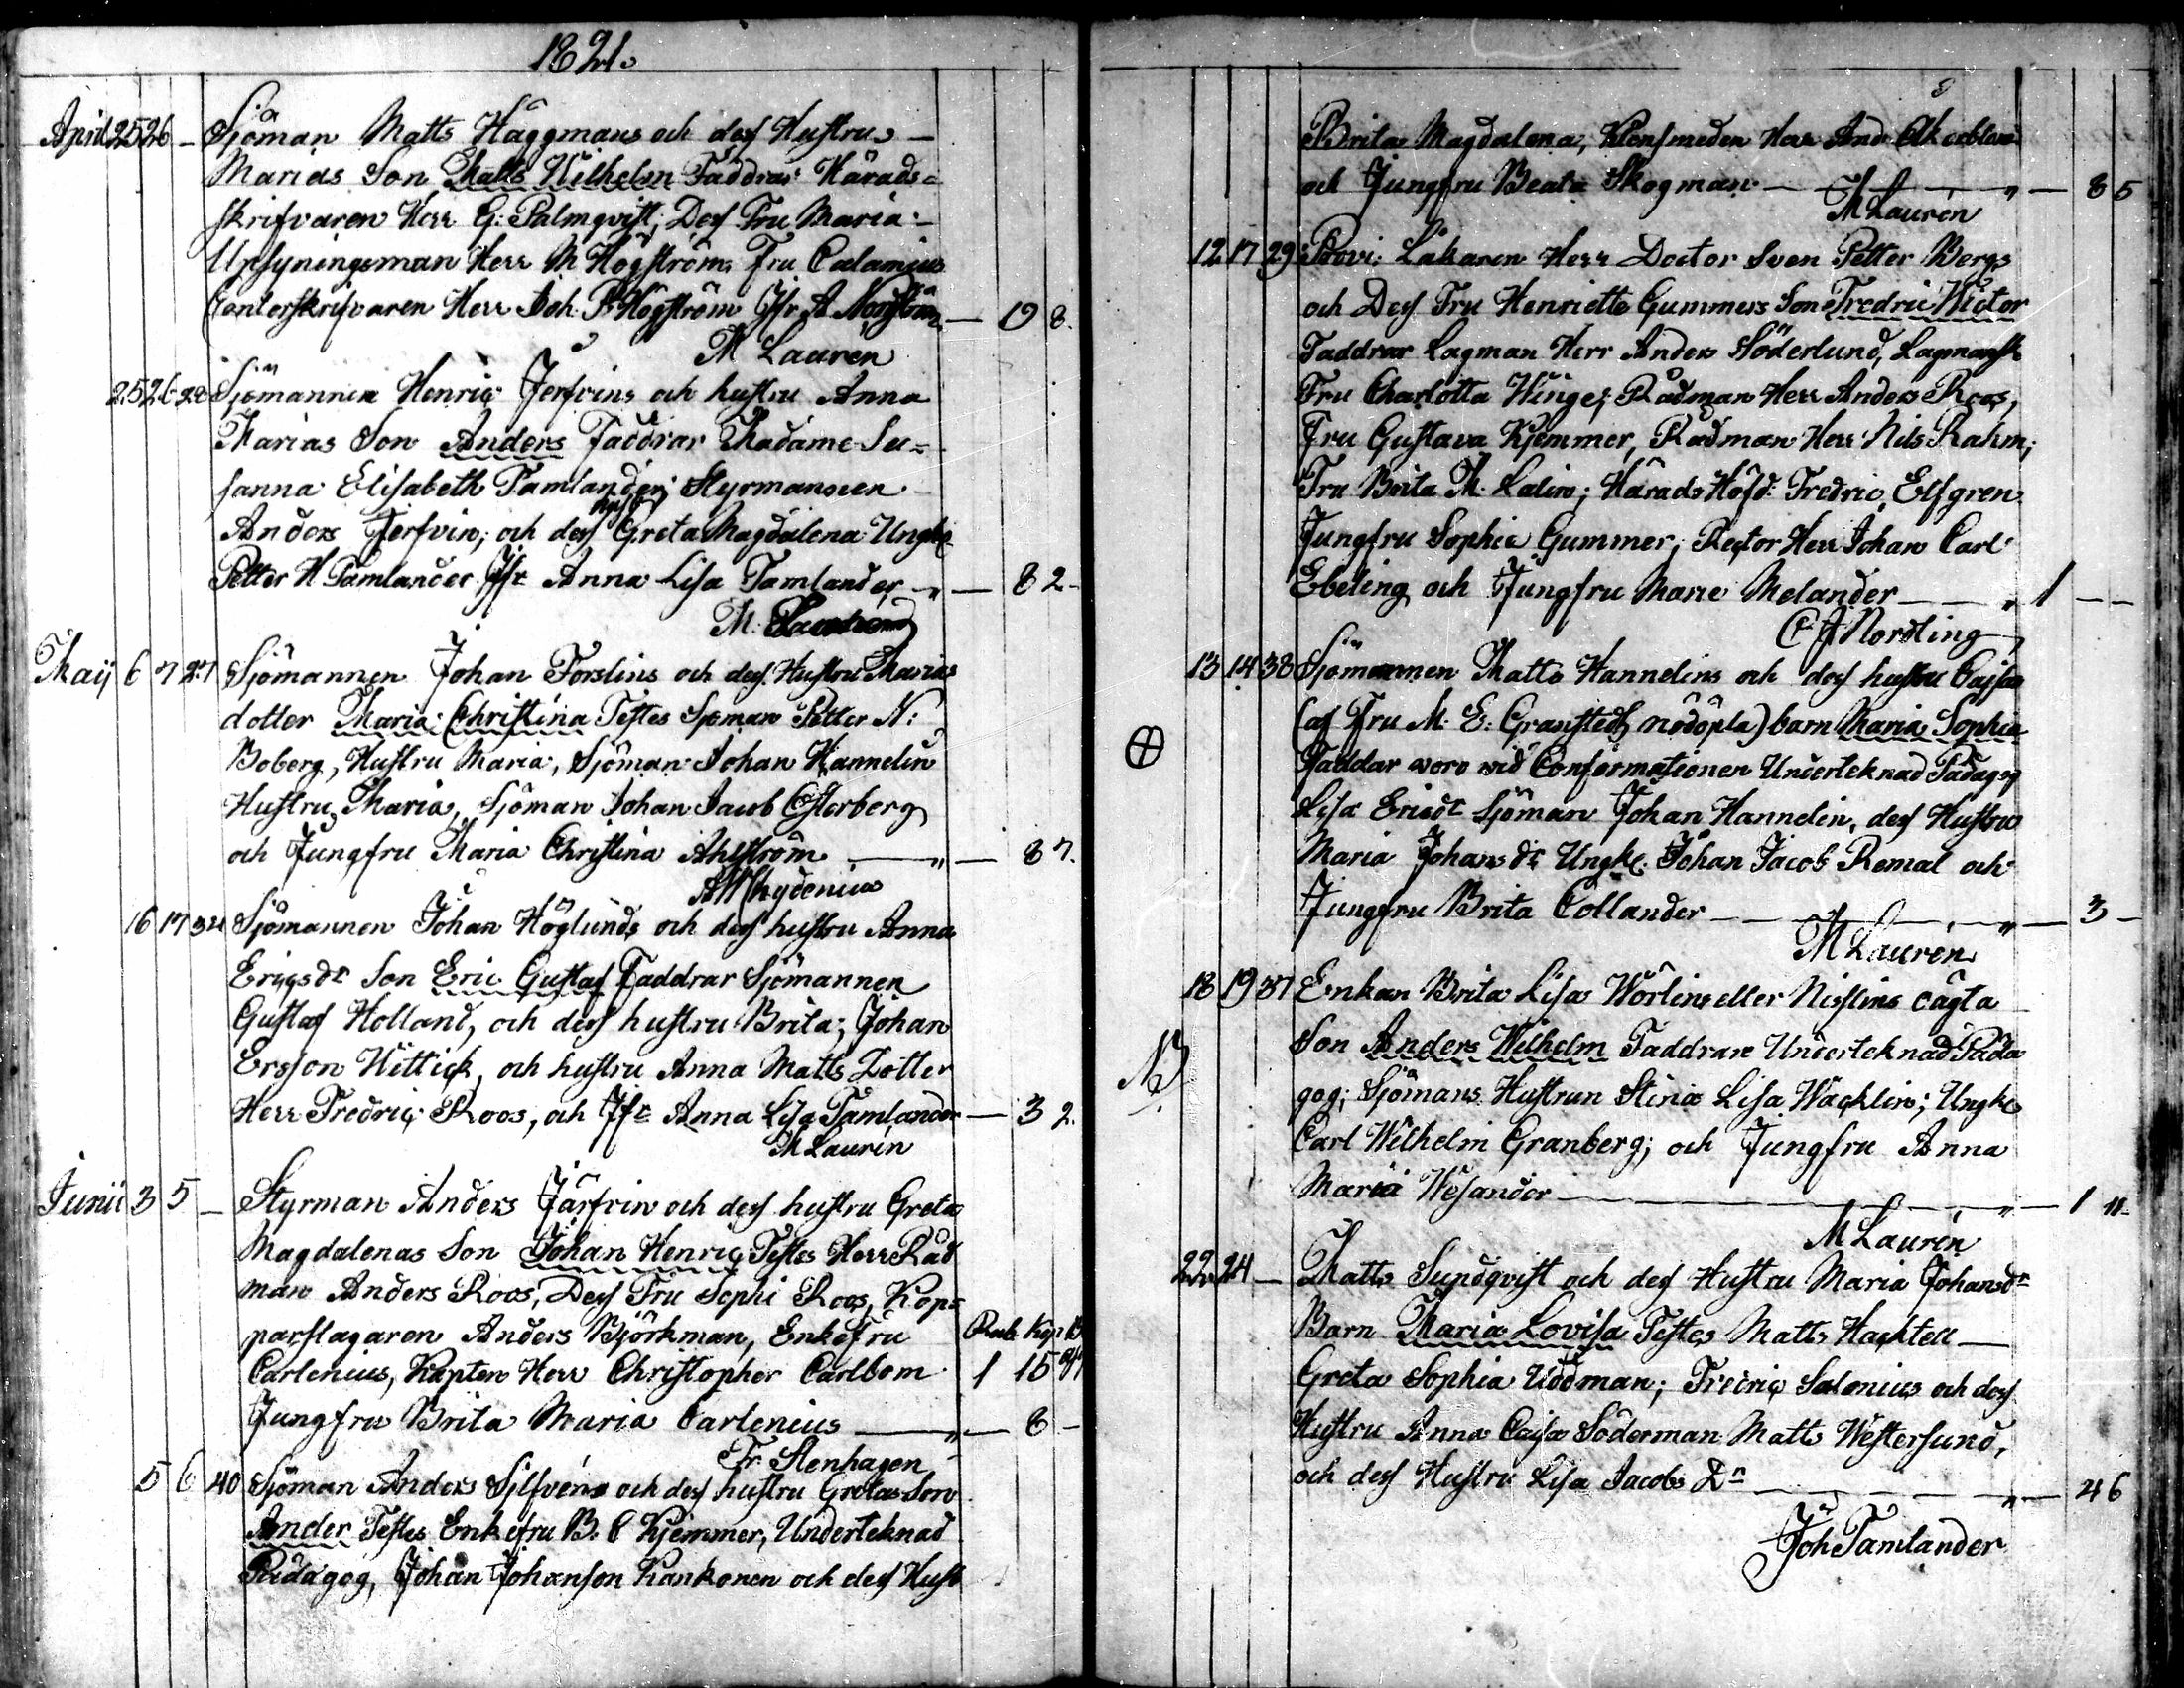 1821.
April 25 26 – Sjöman Matts Häggmans och dess Hustru –
Marias Son Matts Wilhelm Faddrar Härads-
skrifvaren Herr G: Palmqvist, Dess Fru Maria –
Upsyningsman Herr M Högström Fru Calamius
Contorskrifvaren Herr Joh. P. Högström Jfr A Norström — 19 8.
M Lauren
25 26 28 Sjömannen Henric Jerfvins och hustru Anna
Marias Son Anders Faddrar Madame Su-
sanna Elisabeth Tamlander; Styrmannen
Anders Jerfvin, och dess Greta Magdalena Ungke
Petter H Tamlander Jfr Anna Lisa Tamlander — " — 8 2 –
M.
Maij 6 7 27 Sjömannen Johan Forslins och dess Hustru Marias
dotter Maria Christina Testes Sjöman Petter N:
Boberg, Hustru Maria, Sjöman Johan Hannelin
Hustru Maria, Sjöman Johan Jacob Österberg
och Jungfru Maria Christina Ahlström — " — 8 7.
Chydenius
16 17 34 Sjömannen Johan Höglunds och dess hustru Anna
Ericsdr Son Eric Gustaf Faddrar Sjömannen
Gustaf Holland, och dess hustru Brita; Johan
Ersson Wittick, och hustru Anna Matts Dotter
Herr Fredric Roos, och Jfr Anna Lisa Tamlander — 3 2.
M Laurin
Junii 3 5 – Styrman Anders Järfvin och dess hustru Greta
Magdalenas Son Johan Henric Testes Herr Råd
man Anders Roos, Dess Fru Sophi Roos, Kop-
parslagaren Anders Björkman, Enkefru Rub. Kop
Carlenius, Kapten Herr Christopher Carlbom 1 15
Jungfru Brita Maria Carlenius — " — 8 –
Fr. Stenhagen
5 6 40 Sjöman Anders Silfvéns och dess hustru Gretas Son
Ander Testes Enkefru B. C Kjemmer, Underteknad
Pædagog, Johan Johanson Kankonen och dess Hust
Brita Magdalena, Klensmeden Herr And:
och Jungfru Beata Skogman — " — 8 5
M Laurén
12 17 29 Provi: Läkaren Herr Doctor Sven Petter Bergs
och Dess Fru Henriette Gummers Son Fredric Victor
Faddrar Lagman Herr Anders Söderlund, Lagmansk
Fru Charlotta Winge; Rådman Herr Anders Roos,
Fru Gustava Kjemmer, Rådman Herr Nils Rahm;
Fru Brita M. Lalin; Härads Höfd: Fredric Elfgren
Jungfru Sophia Gummer; Rector Herr Johan Carl
Ebeling och Jungfru Marie Melander — " 1 – –
C J Nordling
13 14 38 Sjömannen Matts Hannelins och dess hustru Cajsas
(af Fru M. E. Granstedt nödöpta) barn Maria Sophia
Faddar woro wid Confirmationen Underteknad Pædagog
Lisa Ericdr Sjöman Johan Hannelin, dess Hustru
Maria Johansdr Ungke. Johan Jacob Remal och
Jungfru Brita Collander — " — 3 –
M Laurén
18 19 37 Enkan Brita Lisa Wörlins eller Nislins oägta
NB Son Anders Wilhelm Faddrar Underteknad Pæda
gog; Sjömans Hustrun Stina Lisa Wacklin; Ungke
Carl Wilhelm Granberg; och Jungfru Anna
Maria Wesander — " — 1 11.
M Laurén
22 24 – Matts Sundqvist och dess Hustru Maria Johansdr
Barn Maria Lovisa Testes Matts Hacktell —
Greta Sophia Uddman; Fredric Salonius och dess
Hustru Anna Caisa Söderman Matts Westersund,
och dess Hustru Lisa Jacobs Dr — " — 4 6
Joh Tamlander